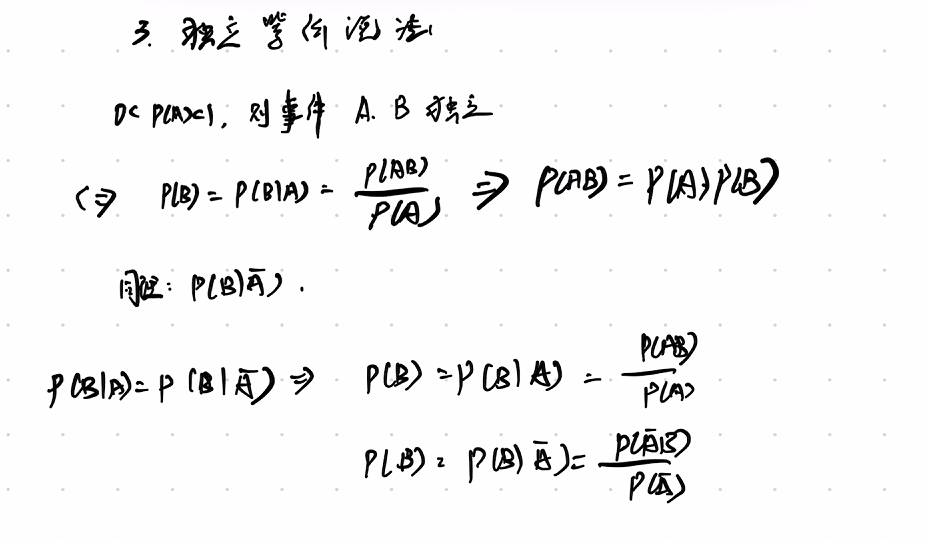 3. 独立等价说法
0< P(A)<1, 则事件 A. B 独立
<=> P(B) = P(B|A) = P(AB)/P(A) => P(AB) = P(A)P(B)
同理: P(B|Ā).
P(B|A) = P(B|Ā) => P(B) = P(B|A) = P(AB)/P(A)
P(B) = P(B|Ā) = P(ĀB)/P(Ā)